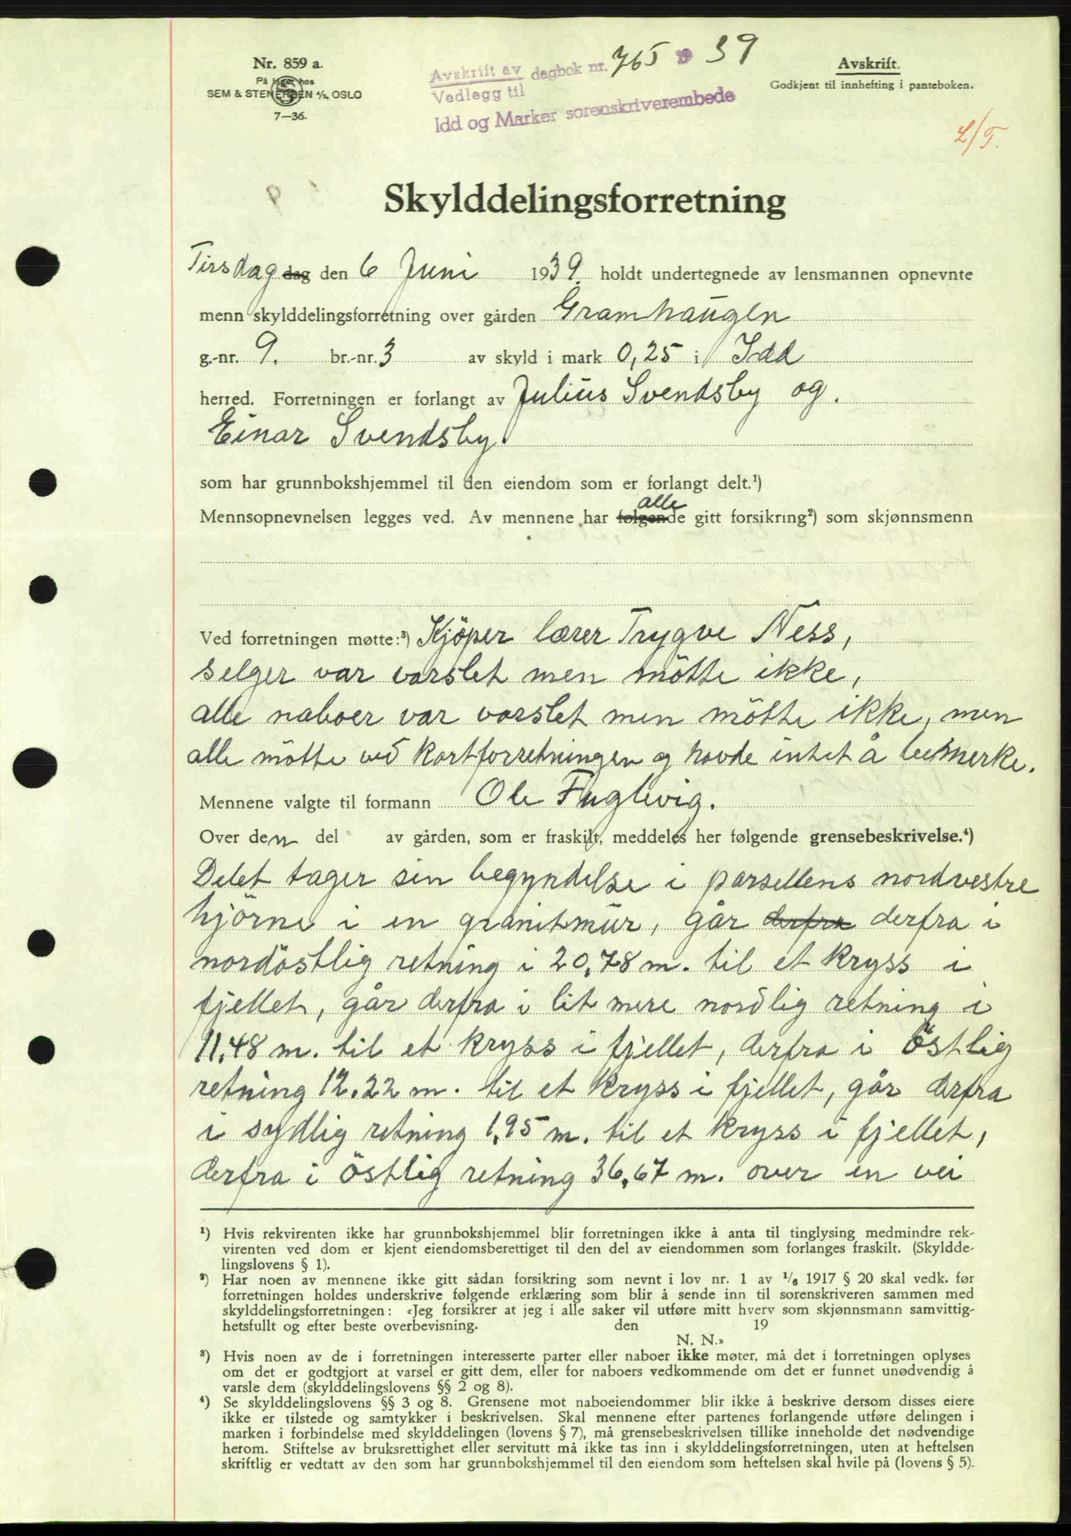 Nr. 859 a.
På lager hos
SEM & STENERSEN A/S, OSLO
7—36.
Avskrift av dagbok nr. 765 19 39
Vedlegg til
Idd og Marker sorenskriverembede
Avskrift.
Godkjent til innhefting i panteboken.
L/T.
Skylddelingsforretning
Tirsdag dag den 6 Juni 1939. holdt undertegnede av lensmannen opnevnte
menn skylddelingsforretning over gården Gramhaugen
g.-nr. 9. br.-nr. 3 av skyld i mark 0,25 i Idd
herred. Forretningen er forlangt av Julius Svendsby og.
Einar Svendsby.
som har grunnbokshjemmel til den eiendom som er forlangt delt.¹)
alle
Mennsopnevnelsen legges ved. Av mennene har følgende gitt forsikring²) som skjønnsmenn
Ved forretningen møtte:³) Kjöper lærer Trygve Ness,
selger var varslet men mötte ikke,
alle naboer var varslet men mötte ikke, men
alle mötte ved kartforretningen og havde intet å bemerke.
Mennene valgte til formann Ole Fuglevig.
Over den del av gården, som er fraskilt, meddeles her følgende grensebeskrivelse.⁴)
Delet tager sin begyndelse i parsellens nordvestre
hjörne i en granitmur, går derfra derfra i
nordöstlig retning i 20,78 m. til et kryss i
fjellet, går derfra i lit mere nordlig retning i
11,48 m. til et kryss i fjellet, derfra i östlig
retning 12.22 m. til et kryss i fjellet, går derfra
i sydlig retning 1,95 m. til et kryss i fjellet,
derfra i östlig retning 36,67 m. over en vei
¹) Hvis rekvirenten ikke har grunnbokshjemmel blir forretningen ikke å anta til tinglysing medmindre rek-
virenten ved dom er kjent eiendomsberettiget til den del av eiendommen som forlanges fraskilt. (Skyldde-
lingslovens § 1).
²) Har noen av mennene ikke gitt sådan forsikring som nevnt i lov nr. 1 av 1/6 1917 § 20 skal vedk. før
forretningen holdes underskrive følgende erklæring som blir å sende inn til sorenskriveren sammen med
skylddelingsforretningen: «Jeg forsikrer at jeg i alle saker vil utføre mitt hverv som skjønnsmann samvittig-
hetsfullt og efter beste overbevisning. den 19
N. N.»
³) Hvis noen av de i forretningen interesserte parter eller naboer ikke møter, må det i forretningen oplyses
om det er godtgjort at varsel er gitt dem, eller for naboers vedkommende om det er funnet unødvendig å
varsle dem (skylddelingslovens §§ 2 og 8).
⁴) Se skylddelingslovens §§ 3 og 8. Grensene mot naboeiendommer blir ikke å beskrive dersom disses eiere
ikke er tilstede og samtykker i beskrivelsen. Skal mennene efter partenes forlangende utføre delingen i
marken i forbindelse med skylddelingen (lovens § 7), må grensebeskrivelsen tillike inneholde det nødvendige
herom. Stiftelse av bruksrettighet eller servitutt må ikke tas inn i skylddelingsforretningen, uten at heftelsen
skriftlig er vedtatt av den som har grunnbokshjemmel til den eiendom som heftelsen skal hvile på (lovens § 5).